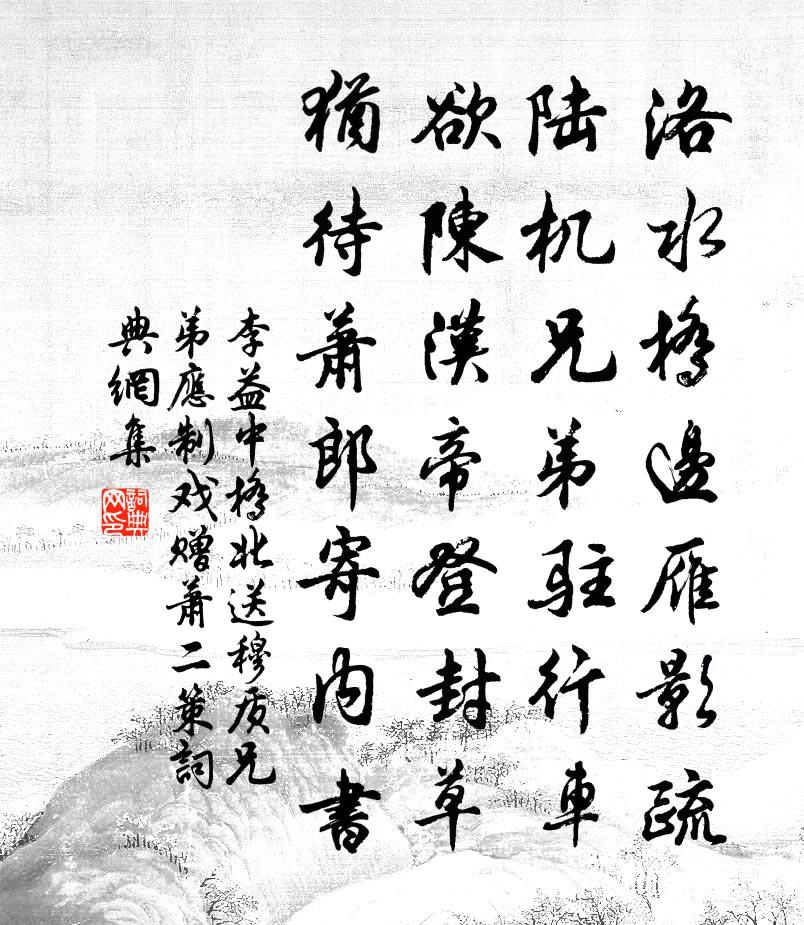 洛水橋邊雁影疏
陆机兄弟驻行車
欲陳漢帝登封草
猶待萧郎寄内書
李益中橋北送穆质兄
弟應制戏赠萧二策詞
典網集
詞典网印